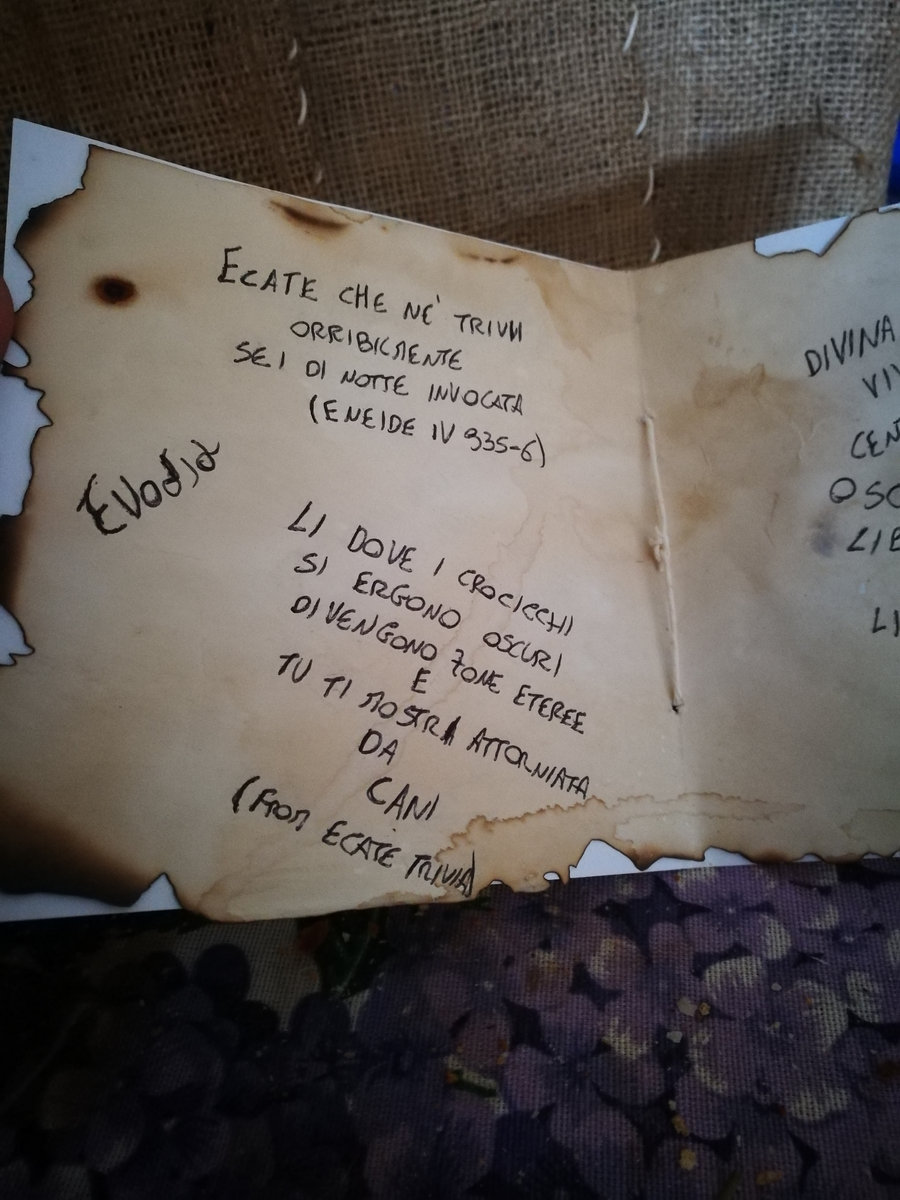 ECATE CHE NE' TRIVII
ORRIBILMENTE
SEI DI NOTTE INVOCATA
(ENEIDE IV 935-6)
Evodia
LI DOVE I CROCICCHI
SI ERGONO OSCURI
DIVENGONO ZONE ETEREE
E
TU TI MOSTRI ATTORNIATA
DA
CANI
(From ECATE TRIVIA)
DIVINA
VIV
CEN
OSC
LIB
LI